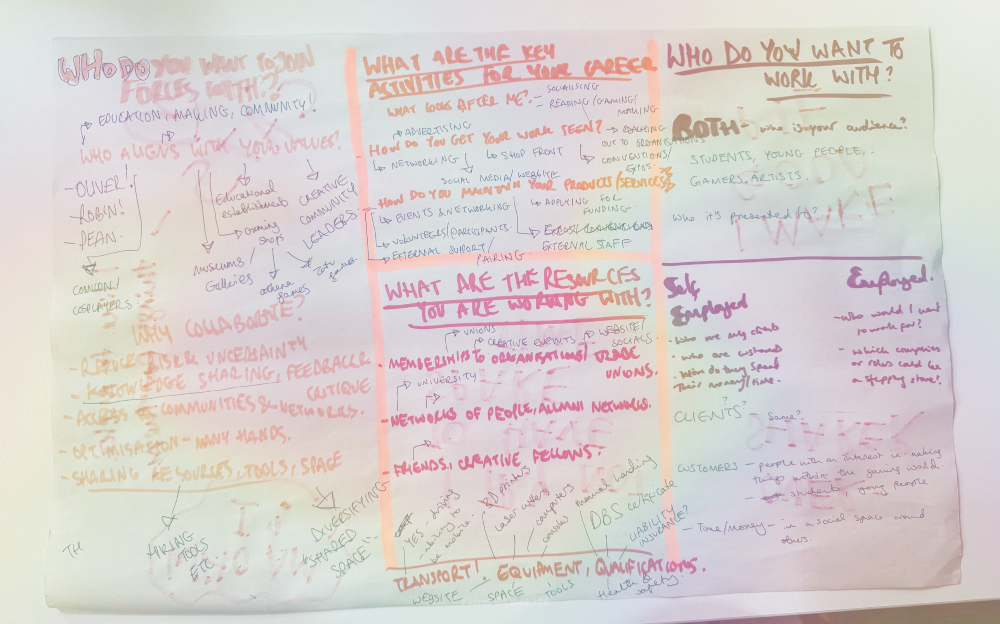 WHO DO YOU WANT TO JOIN
FORCES WITH?
EDUCATION, MAKING, COMMUNITY!
WHO ALIGNS WITH YOUR VALUES?
- OLIVER!
- ROBIN!
- DEAN.
COMICON/
COSPLAYERS
Educational
establishments
Gaming
shops
MUSEUMS/
Galleries
athena
games
CREATIVE
COMMUNITY
LEADERS
WHY COLLABORATE?
- REDUCE RISK & UNCERTAINTY
- KNOWLEDGE SHARING, FEEDBACK &
CRITIQUE
- ACCESS TO COMMUNITIES & NETWORKS.
- OPTIMISATION - MANY HANDS.
- SHARING RESOURSES, TOOLS, SPACE
TH
HIRING
TOOLS
ETC.
DIVERSIFYING
"SHARED
SPACE"
WHAT ARE THE KEY
ACTIVITIES FOR YOUR CAREER
WHAT LOOKS AFTER ME?
- SOCIALISING
- READING/GAMING/
MAKING
ADVERTISING
- HOW DO YOU GET YOUR WORK SEEN?
NETWORKING
SHOP FRONT
SOCIAL MEDIA/WEBSITE
REACHING
OUT TO ORGANISATIONS
CONVENTIONS/
EXPOS.
- HOW DO YOU MAINTAIN YOUR PRODUCTS/SERVICES?
EVENTS & NETWORKING
VOLUNTEERS/PARTICIPANTS.
EXTERNAL SUPPORT/
PAIRING
APPLYING FOR
FUNDING.
EXTERNAL STAFF
WHAT ARE THE RESOURCES
YOU ARE WORKING WITH?
UNIONS
CREATIVE EVENTS
WEBSITE/
SOCIALS
- MEMBERSHIPS TO ORGANISATIONS/TRADE
UNIONS.
UNIVERSITY
- NETWORKS OF PEOPLE, ALUMNI NETWORKS.
- FRIENDS, CREATIVE FELLOWS.
YES - driving
- ability to
be mobile
3D printers
Laser cutters
computers
consoles
manual handling
DBS certificate
LIABILITY
INSURANCE?
TRANSPORT! EQUIPMENT, QUALIFICATIONS.
WEBSITE
SPACE
TOOLS
Health &
safety.
WHO DO YOU WANT TO
WORK WITH?
BOTH - who is your audience?
STUDENTS, YOUNG PEOPLE,
GAMERS, ARTISTS.
Who it's presented to?
Self
Employed
• Who are my clients
• who are customers
• Who do they spend
Their money/time.
Employed.
- Who would I want
to work for?
- which companies
or roles could be
a stepping stone?
CLIENTS? - Same?
CUSTOMERS - people with an interest in making
things within the gaming world.
- students, young people
- Time/money - in a social space around
others.